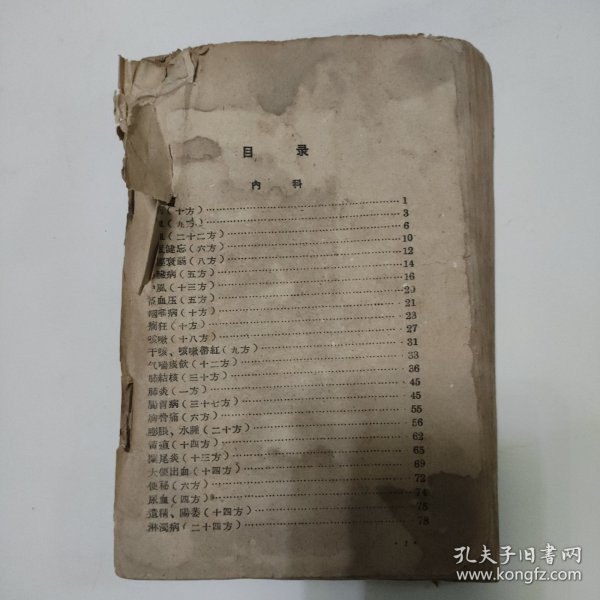 目 录
内 科
(十方) 1
(九方) 3
(二十二方) 6
健忘(六方) 10
衰弱(八方) 12
病(五方) 14
風(十三方) 16
血压(五方) 20
病(十方) 21
癎狂(十方) 23
咳嗽(十八方) 27
干咳、咳嗽带紅(九方) 31
气喘痰飲(十二方) 33
肺結核(三十方) 36
肺炎(一方) 45
腸胃病(三十七方) 45
胸骨痛(六方) 55
膨脹、水腫(二十方) 56
黄疸(十四方) 62
闌尾炎(十三方) 65
大便出血(十四方) 69
便秘(六方) 72
尿血(四方) 74
遺精、陽萎(十四方) 75
淋濁病(二十四方) 78
· 1 ·
孔夫子旧书网
www.kongfz.com